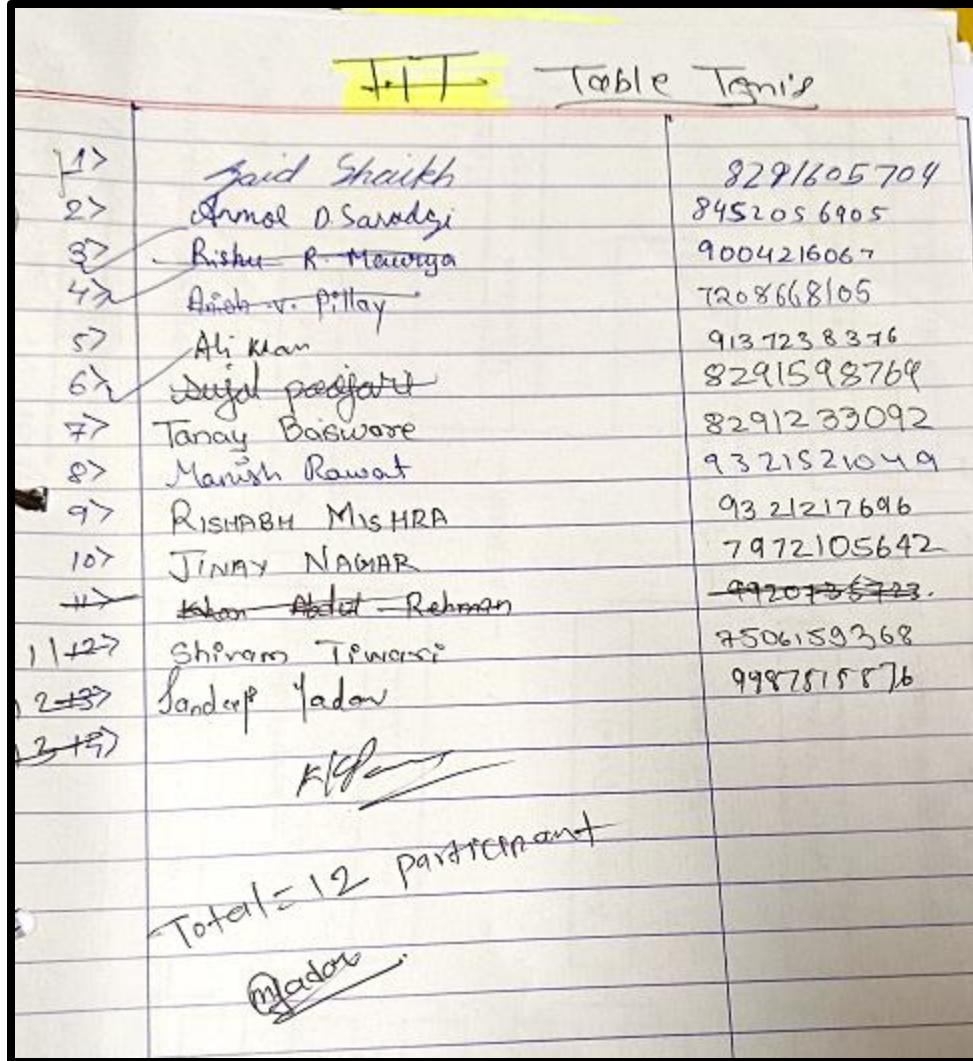 I.I.T Table Tenis
1> Zaid Shaikh 8291605704
2> Anmol D. Saradgi 8452056905
3> Rishu R. Maurya 9004216067
4> Anish .v. Pillay 7208668105
5> Ali Khan 9137238376
6> Sujal poojari 8291598769
7> Tanay Baswore 8291233092
8> Manish Rawat 9321521049
9> RISHABH MISHRA 9321217696
10> JINAY NAGAR 7972105642
11> Khan Abdul Rehman 9920735723.
11 12> Shivam Tiwari 7506159368
12 13> Sandeep Yadav 9987515876
Total = 12 participant